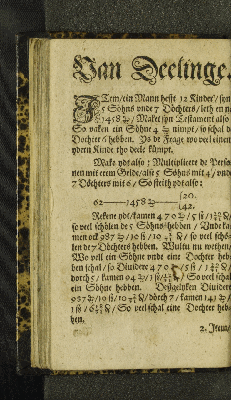 Van Deelinge.
Item/ein Mann hefft 12 Kinder/
5 Söhns vnde 7 Döchters/ leth en na
1458 / Maket syn Testament also
So vaken ein Söhne 4 nimpt/ so schal de
Dochter 6 hebben. Ys de Frage wo veel einem
ydern Kinde tho deele kümpt.
Make ydt also: Multiplicere de Perso
nen mit erem Gelde/ alse 5 Söhns mit 4/ vnde
7 Döchters mit 6/ So steith ydt also:
20.
62——1458
42.
Rekene ydt/ kamen 470 / 5 ß/
so veel schölen de 5 Söhns hebben/ Vnde ka
men ock 987 / 10 ß/ so veel schö
len de 7 Döchters hebben. Wultu nu wethen/
Wo veel ein Söhne vnde eine Dochter heb
ben schal/ so Dividere 470 / 5 ß/
dorch 5/ kamen 94 / 1 ß/ So veel schal
ein Söhne hebben. Deßgelyken Dividere
937 / 10 ß/ dörch 7/ kamen 141
1 ß/ so veel schal eine Dochter heb
ben.
2. Item/